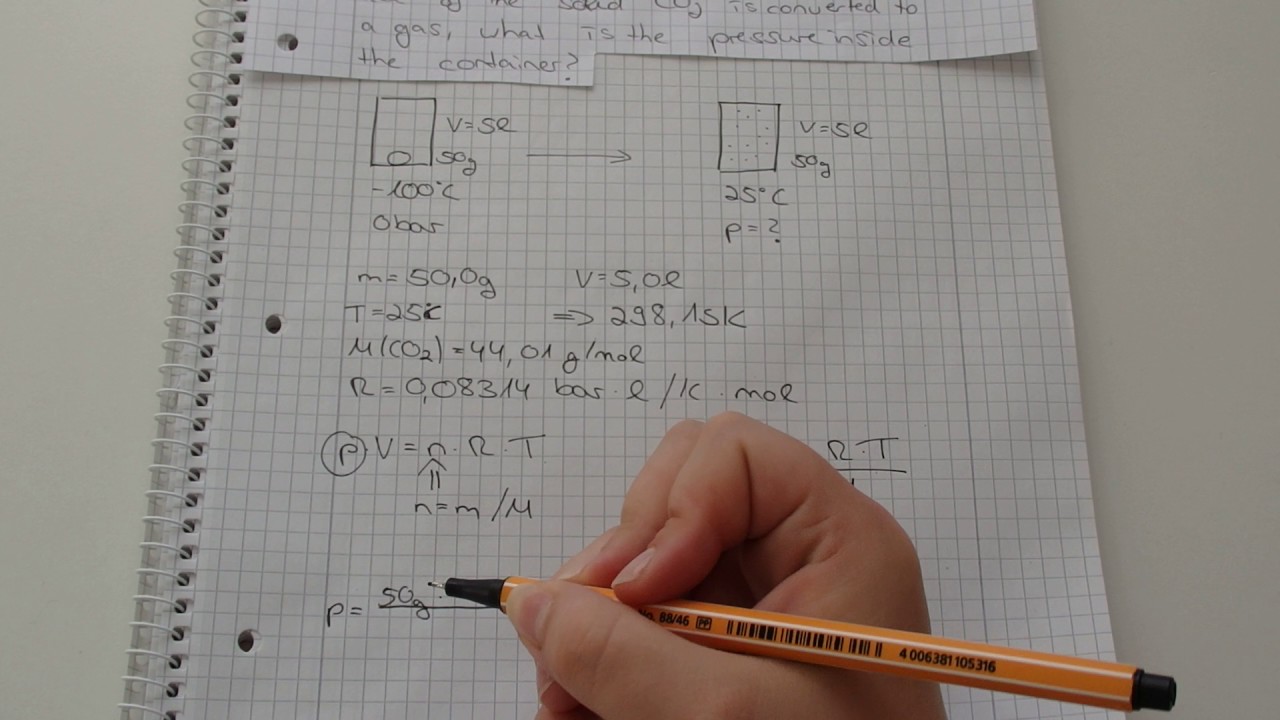 the solid CO2 is converted to
a gas, what is the pressure inside
the container?
V=5l
50g
-100°C
0bar
V=5l
50g
25°C
p=?
m=50,0g V=5,0l
T=25°C => 298,15K
M(CO2)=44,01 g/mol
R=0,08314 bar·l/K·mol
p V=n·R·T R·T
n=m/M
p= 50g·
No. 88/46 PP 4 006381 105316